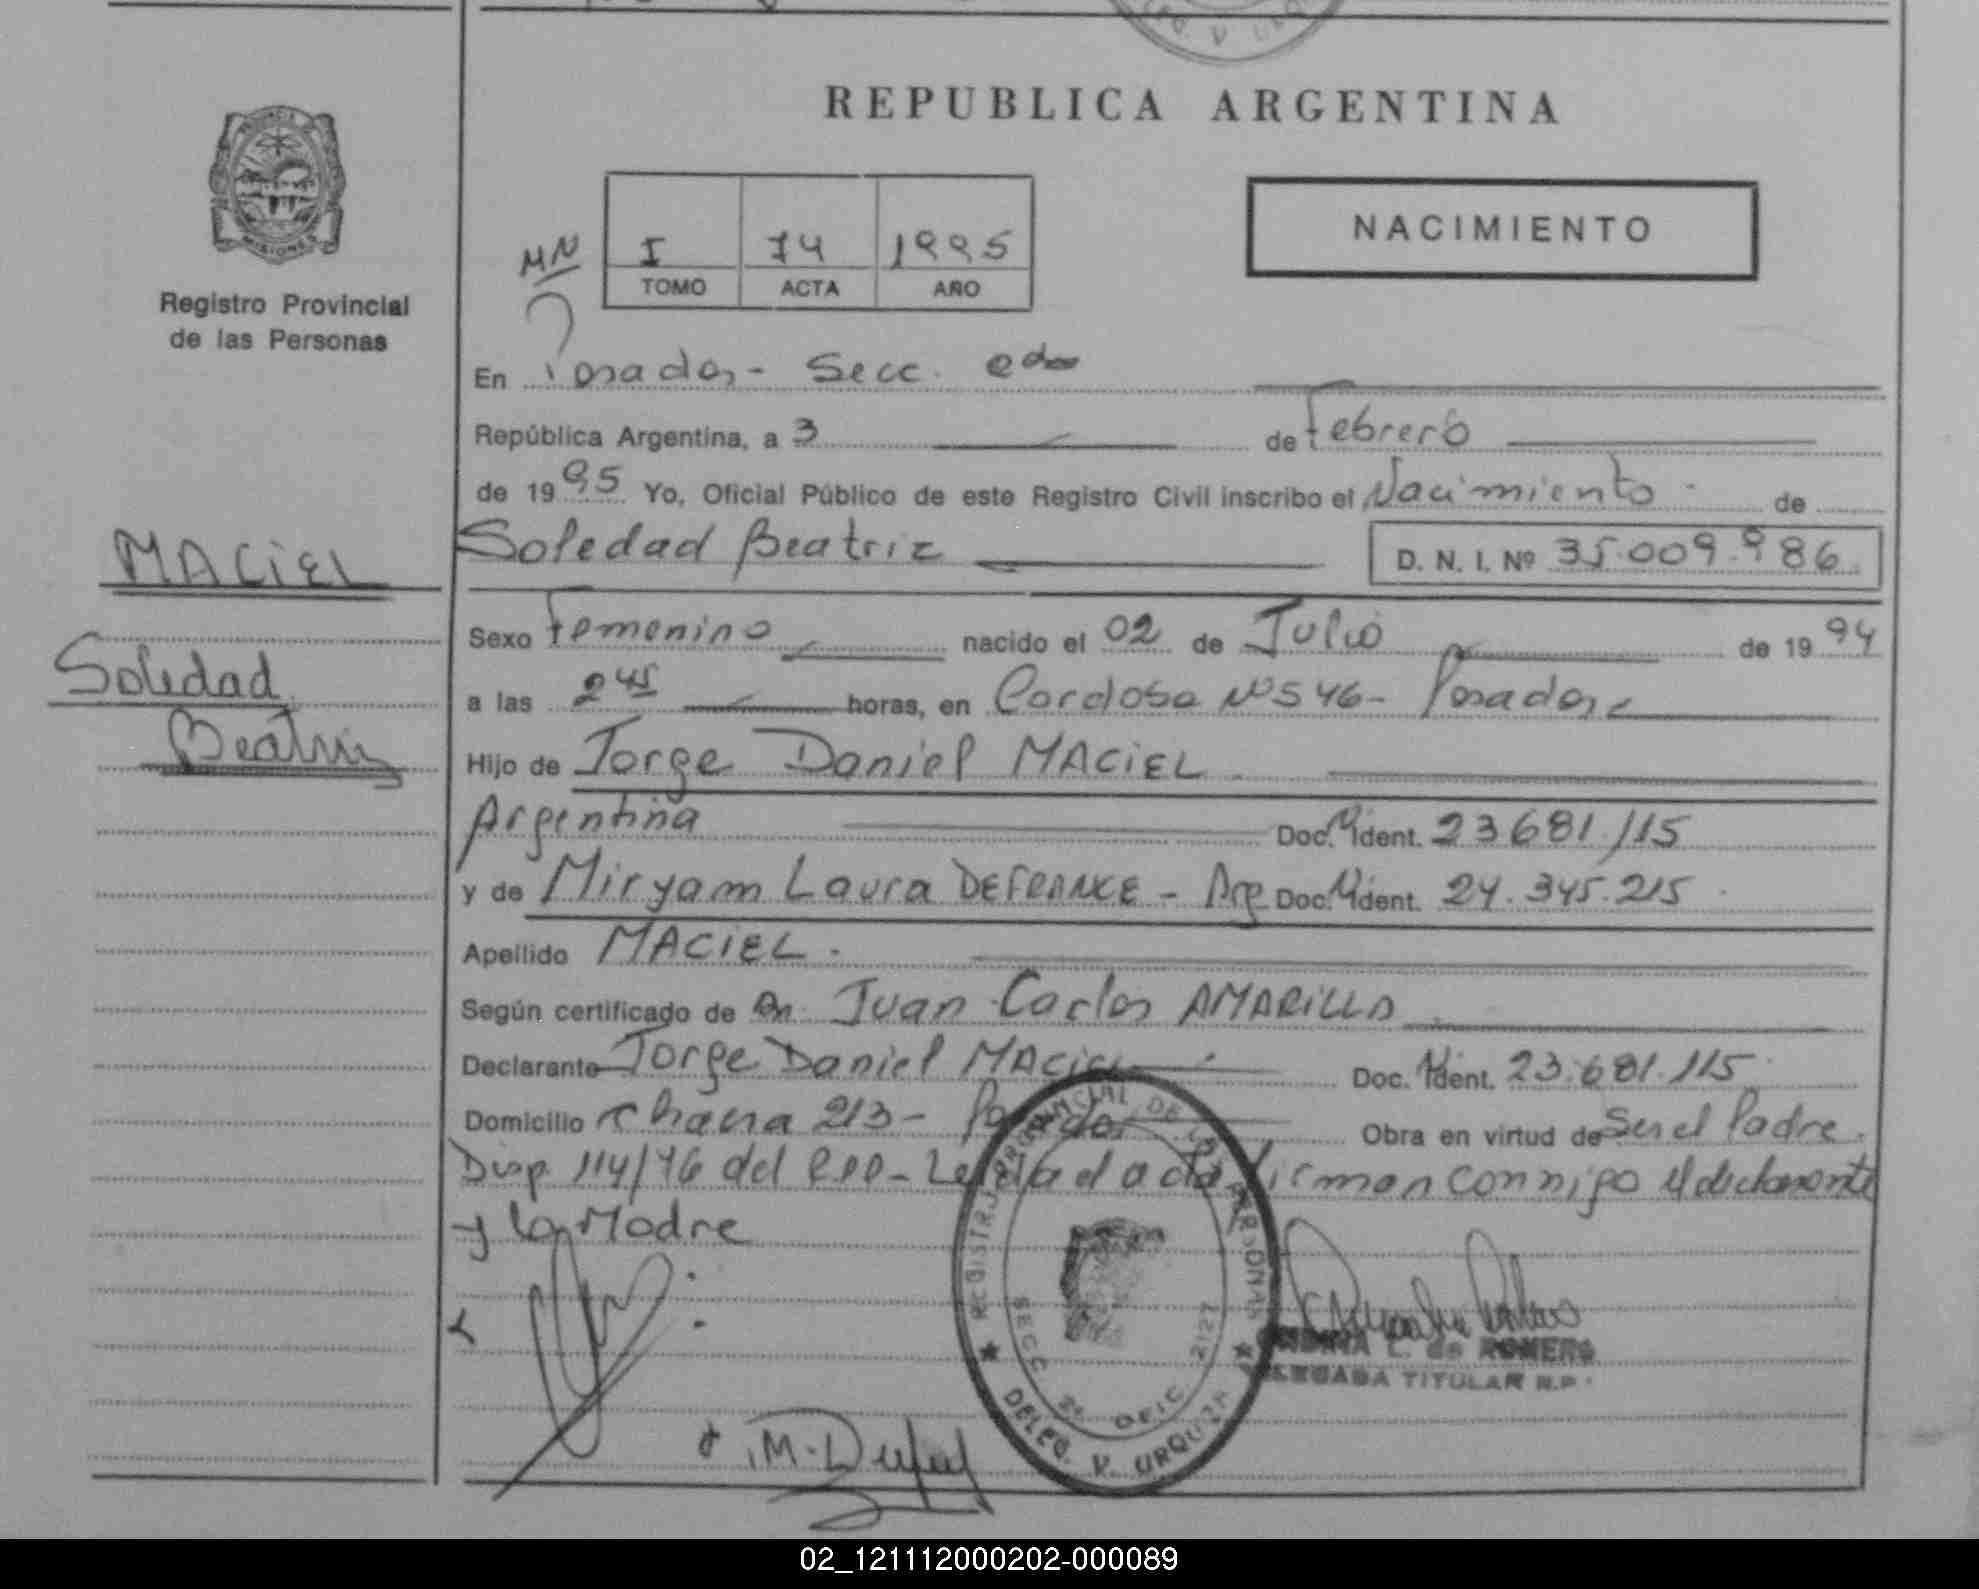 REPUBLICA ARGENTINA
PROVINCIA DE MISIONES
Registro Provincial
de las Personas
NACIMIENTO
MN
I 74 1995
TOMO ACTA AÑO
En Posadas - Secc. 2da
República Argentina, a 3 de Febrero
de 1995 Yo, Oficial Público de este Registro Civil inscribo el Nacimiento de
Soledad Beatriz D. N. I. Nº 35.009.986
MACIEL
Soledad
Beatriz
Sexo Femenino nacido el 02 de Julio de 1994
a las 2 45 horas, en Cordoba Nº 546 - Posadas
Hijo de Jorge Daniel MACIEL
Argentina Doc. Ident. 23681.115
y de Miryam Laura DEFRANCE - Arg Doc. Ident. 24.345.215
Apellido MACIEL.
Según certificado de Juan Carlos AMARILLA
Declarante Jorge Daniel MACIEL Doc. Ident. 23.681.115
Domicilio Chacra 213 - Posadas Obra en virtud de Ser el Padre.
Disp. 114/76 del RPP - Leida el acta firman conmigo el declarante
y la Madre
REGISTRO PROVINCIAL DE LAS PERSONAS
SECC 2a OFIC 2127
DELEG. V. URQUIZA
L. de ROMERO
DELEGADA TITULAR R.P.
02_121112000202-000089